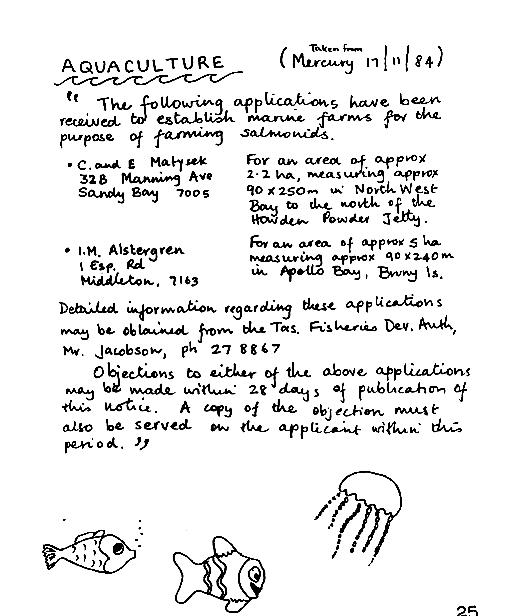 AQUACULTURE
(Taken from
Mercury 17/11/84)
" The following applications have been
received to establish marine farms for the
purpose of farming salmonids.
• C. and E Matysek
32B Manning Ave
Sandy Bay 7005
For an area of approx
2.2 ha, measuring approx
90 x 250m in North West
Bay to the north of the
Howden Powder Jetty.
• I.M. Alstergren
1 Esp. Rd
Middleton, 7163
For an area of approx 5 ha
measuring approx 90x240m
in Apollo Bay, Bruny Is.
Detailed information regarding these applications
may be obtained from the Tas. Fisheries Dev. Auth,
Mr. Jacobson, ph 27 8867
Objections to either of the above applications
may be made within 28 days of publication of
this notice. A copy of the objection must
also be served on the applicant within this
period. "
25